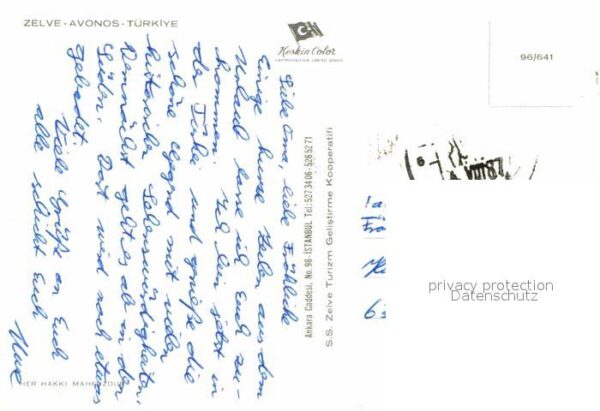 ZELVE - AVONOS - TÜRKİYE
Keskin Color
96/641
Liebe Oma, liebe Fröhliche
Einige kurze Zeilen aus dem
Urlaub lasse ich Euch zu-
kommen. Ich bin jetzt in
der Türkei und genieße die
schöne Gegend mit vielen
historischen Sehenswürdigkeiten.
Demnächst geht es ab in den
Süden. Dort wird noch etwas
gebadet.
Viele Grüße an Euch
alle schickt Euch
Uwe
Ankara Caddesi, No. 98 - İSTANBUL Tel: 5273406-5265271
S.S. Zelve Turizm Geliştirme Kooperatifi
privacy protection
Datenschutz
HER HAKKI MAHFUZDUR